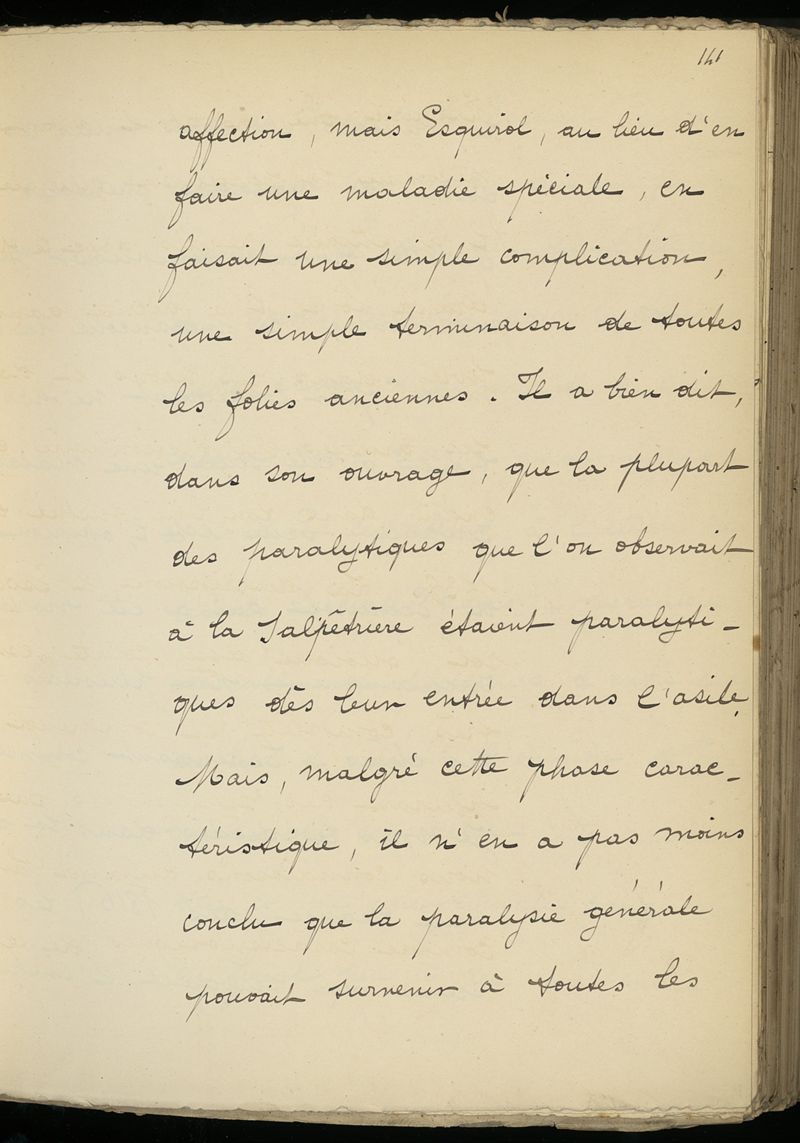 141
affection, mais Esquirol, au lieu d'en
faire une maladie spéciale, en
faisait une simple complication,
une simple terminaison de toutes
les folies anciennes. Il a bien dit,
dans son ouvrage, que la plupart
des paralytiques que l'on observait
à la Salpêtrière étaient paralyti-
ques dès leur entrée dans l'asile.
Mais, malgré cette phase carac-
téristique, il n'en a pas moins
conclu que la paralysie générale
pouvait survenir à toutes les